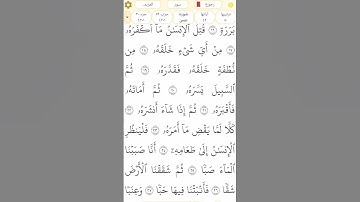 بَرَرَةٍ ۝١٦ قُتِلَ ٱلْإِنسَٰنُ مَآ أَكْفَرَهُۥ ۝١٧
مِنْ أَيِّ شَىْءٍ خَلَقَهُۥ ۝١٨ مِن
نُّطْفَةٍ خَلَقَهُۥ فَقَدَّرَهُۥ ۝١٩ ثُمَّ
ٱلسَّبِيلَ يَسَّرَهُۥ ۝٢٠ ثُمَّ أَمَاتَهُۥ
فَأَقْبَرَهُۥ ۝٢١ ثُمَّ إِذَا شَآءَ أَنشَرَهُۥ ۝٢٢
كَلَّا لَمَّا يَقْضِ مَآ أَمَرَهُۥ ۝٢٣ فَلْيَنظُرِ
ٱلْإِنسَٰنُ إِلَىٰ طَعَامِهِۦٓ ۝٢٤ أَنَّا صَبَبْنَا
ٱلْمَآءَ صَبًّا ۝٢٥ ثُمَّ شَقَقْنَا ٱلْأَرْضَ
شَقًّا ۝٢٦ فَأَنۢبَتْنَا فِيهَا حَبًّا ۝٢٧ وَعِنَبًا